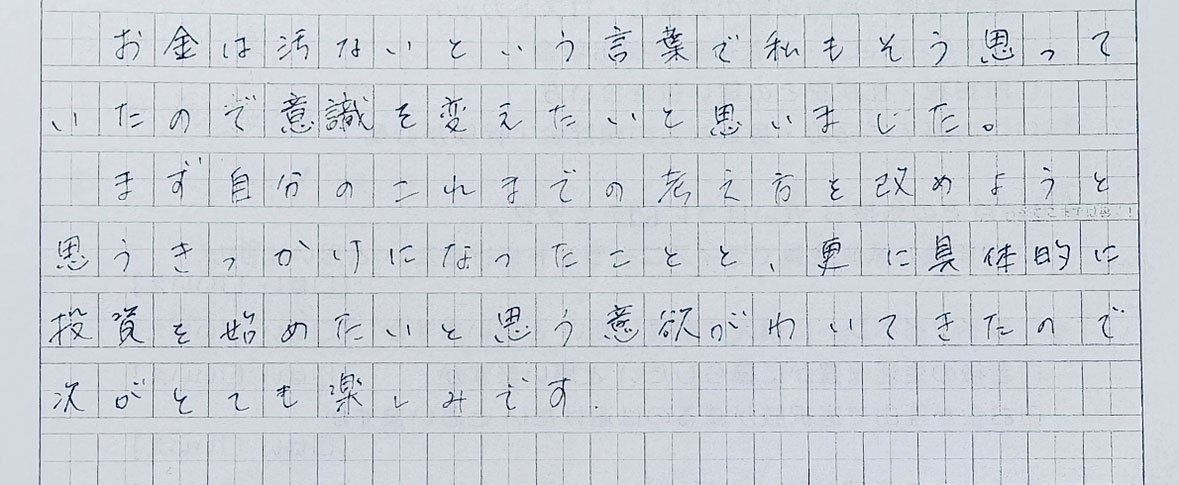 お金は汚ないという言葉で私もそう思って
いたので意識を変えたいと思いました。
まず自分のこれまでの考え方を改めようと
思うきっかけになったことと、更に具体的に
投資を始めたいと思う意欲がわいてきたので
次がとても楽しみです.